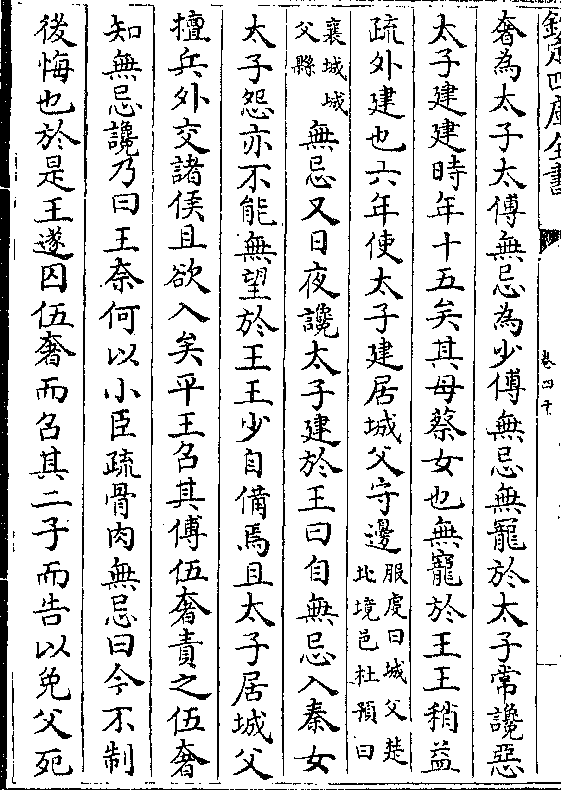 欽定四庫全書
卷四十
奢為太子太傅無忌為少傅無忌無寵於太子常讒惡
太子建建時年十五矣其母蔡女也無寵於王王稍益
疏外建也六年使太子建居城父守邊服虔曰城父楚北境邑杜預曰
襄城城父縣無忌又日夜讒太子建於王曰自無忌入秦女
太子怨亦不能無望於王王少自備焉且太子居城父
擅兵外交諸侯且欲入矣平王召其傅伍奢責之伍奢
知無忌讒乃曰王柰何以小臣疏骨肉無忌曰今不制
後悔也於是王遂囚伍奢而召其二子而告以免父死